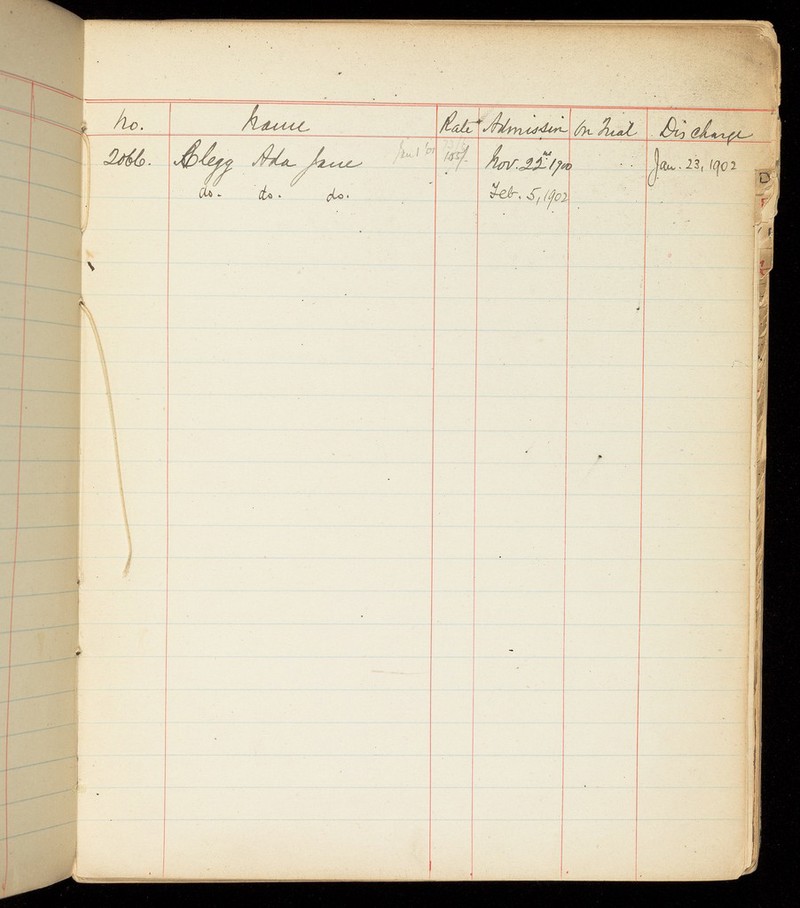 No. Name Rate Admission On Trial Discharge
2066. Clegg Ada Jane Nov. 22nd 1900 Jan. 23, 1902
do. do. do. Feb. 5, 1902
D